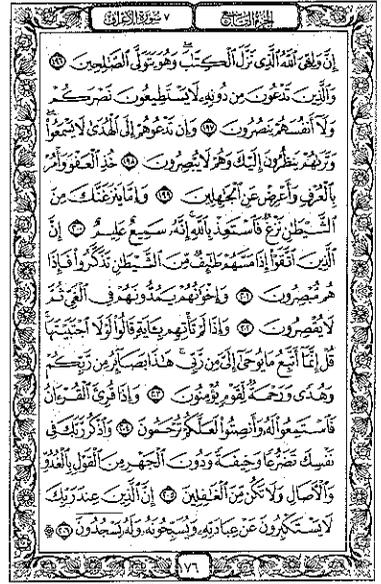 الجزء التاسع
٧ سورة الأعراف
إِنَّ وَلِـِّۧيَ ٱللَّهُ ٱلَّذِي نَزَّلَ ٱلْكِتَٰبَ وَهُوَ يَتَوَلَّى ٱلصَّٰلِحِينَ ١٩٦
وَٱلَّذِينَ تَدْعُونَ مِن دُونِهِۦ لَا يَسْتَطِيعُونَ نَصْرَكُمْ
وَلَآ أَنفُسَهُمْ يَنصُرُونَ ١٩٧ وَإِن تَدْعُوهُمْ إِلَى ٱلْهُدَىٰ لَا يَسْمَعُوا۟
وَتَرَىٰهُمْ يَنظُرُونَ إِلَيْكَ وَهُمْ لَا يُبْصِرُونَ ١٩٨ خُذِ ٱلْعَفْوَ وَأْمُرْ
بِٱلْعُرْفِ وَأَعْرِضْ عَنِ ٱلْجَٰهِلِينَ ١٩٩ وَإِمَّا يَنزَغَنَّكَ مِنَ
ٱلشَّيْطَٰنِ نَزْغٌ فَٱسْتَعِذْ بِٱللَّهِ إِنَّهُۥ سَمِيعٌ عَلِيمٌ ٢٠٠ إِنَّ
ٱلَّذِينَ ٱتَّقَوْا۟ إِذَا مَسَّهُمْ طَٰٓئِفٌ مِّنَ ٱلشَّيْطَٰنِ تَذَكَّرُوا۟ فَإِذَا
هُم مُّبْصِرُونَ ٢٠١ وَإِخْوَٰنُهُمْ يَمُدُّونَهُمْ فِي ٱلْغَيِّ ثُمَّ
لَا يُقْصِرُونَ ٢٠٢ وَإِذَا لَمْ تَأْتِهِم بِـَٔايَةٍ قَالُوا۟ لَوْلَا ٱجْتَبَيْتَهَا
قُلْ إِنَّمَآ أَتَّبِعُ مَا يُوحَىٰٓ إِلَيَّ مِن رَّبِّي هَٰذَا بَصَآئِرُ مِن رَّبِّكُمْ
وَهُدًى وَرَحْمَةٌ لِّقَوْمٍ يُؤْمِنُونَ ٢٠٣ وَإِذَا قُرِئَ ٱلْقُرْءَانُ
فَٱسْتَمِعُوا۟ لَهُۥ وَأَنصِتُوا۟ لَعَلَّكُمْ تُرْحَمُونَ ٢٠٤ وَٱذْكُر رَّبَّكَ فِي
نَفْسِكَ تَضَرُّعًا وَخِيفَةً وَدُونَ ٱلْجَهْرِ مِنَ ٱلْقَوْلِ بِٱلْغُدُوِّ
وَٱلْءَاصَالِ وَلَا تَكُن مِّنَ ٱلْغَٰفِلِينَ ٢٠٥ إِنَّ ٱلَّذِينَ عِندَ رَبِّكَ
لَا يَسْتَكْبِرُونَ عَنْ عِبَادَتِهِۦ وَيُسَبِّحُونَهُۥ وَلَهُۥ يَسْجُدُونَ ۩ ٢٠٦
١٧٦